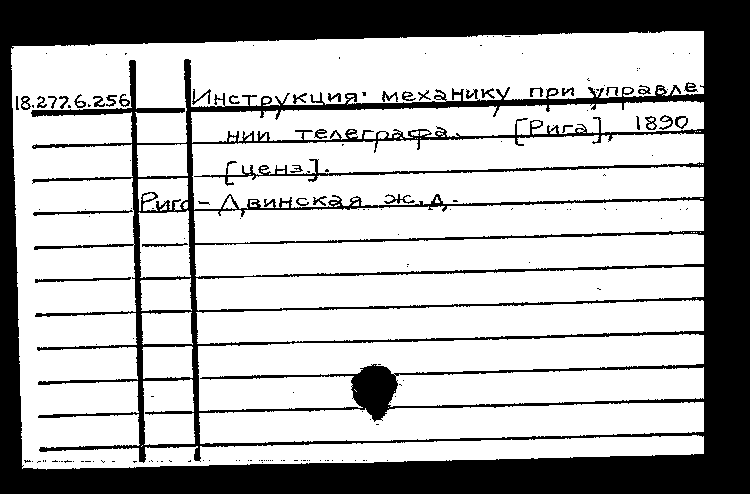 18.277.6.256 Инструкция механику при управле-
нии телеграфа. [Рига], 1890
[ценз.].
Риго-Двинская ж.д.